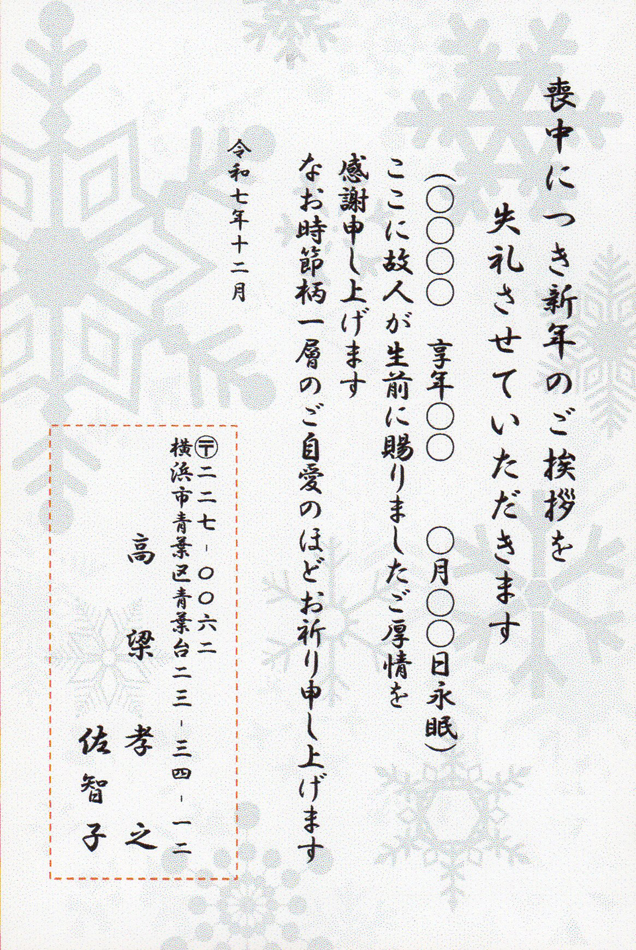 喪中につき新年のご挨拶を
失礼させていただきます
(〇〇〇〇 享年〇〇 〇月〇〇日永眠)
ここに故人が生前に賜りましたご厚情を
感謝申し上げます
なお時節柄一層のご自愛のほどお祈り申し上げます
令和七年十二月
〒二二七-〇〇六二
横浜市青葉区青葉台二三-三四-一二
高梁孝之
佐智子